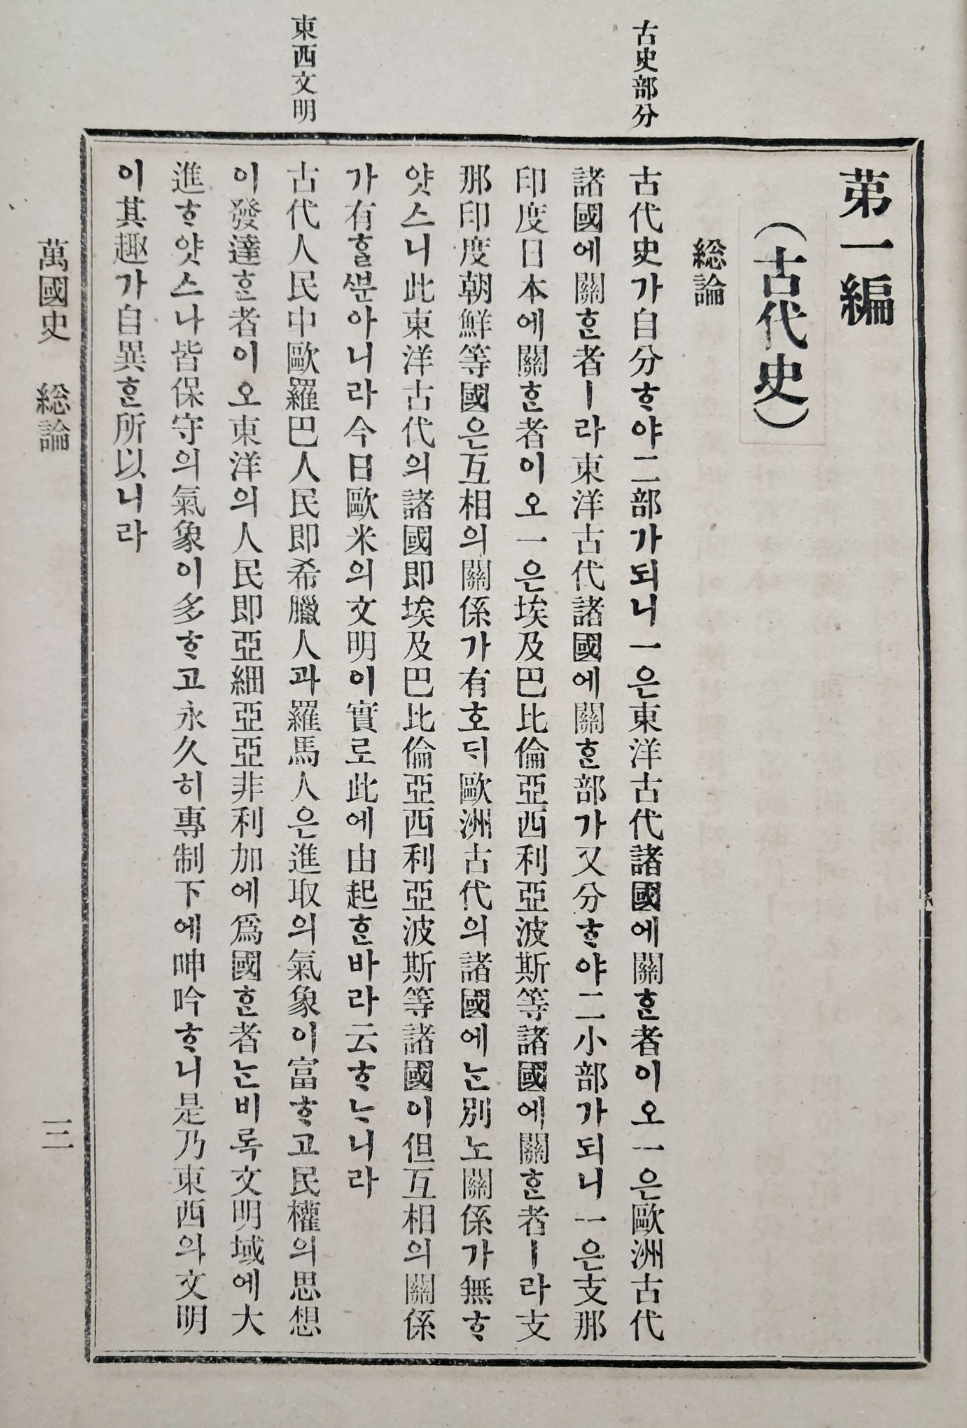 古史部分
東西文明
苐一編
(古代史)
総論
古代史가自分ᄒᆞ야二部가되니一은東洋古代諸國에關ᄒᆞᆫ者이오一은歐洲古代
諸國에關ᄒᆞᆫ者ㅣ라東洋古代諸國에關ᄒᆞᆫ部가又分ᄒᆞ야二小部가되니一은支那
印度日本에關ᄒᆞᆫ者이오一은埃及巴比倫亞西利亞波斯等諸國에關ᄒᆞᆫ者ㅣ라支
那印度朝鮮等國은互相의關係가有호ᄃᆡ歐洲古代의諸國에ᄂᆞᆫ別노關係가無ᄒᆞ
얏스니此東洋古代의諸國即埃及巴比倫亞西利亞波斯等諸國이但互相의關係
가有ᄒᆞᆯᄲᅮᆫ아니라今日歐米의文明이實로此에由起ᄒᆞᆫ바라云ᄒᆞᄂᆞ니라
古代人民中歐羅巴人民即希臘人과羅馬人은進取의氣象이富ᄒᆞ고民權의思想
이發達ᄒᆞᆫ者이오東洋의人民即亞細亞亞非利加에爲國ᄒᆞᆫ者ᄂᆞᆫ비록文明域에大
進ᄒᆞ얏스나皆保守의氣象이多ᄒᆞ고永久히專制下에呻吟ᄒᆞ니是乃東西의文明
이其趣가自異ᄒᆞᆫ所以니라
萬國史 総論
三